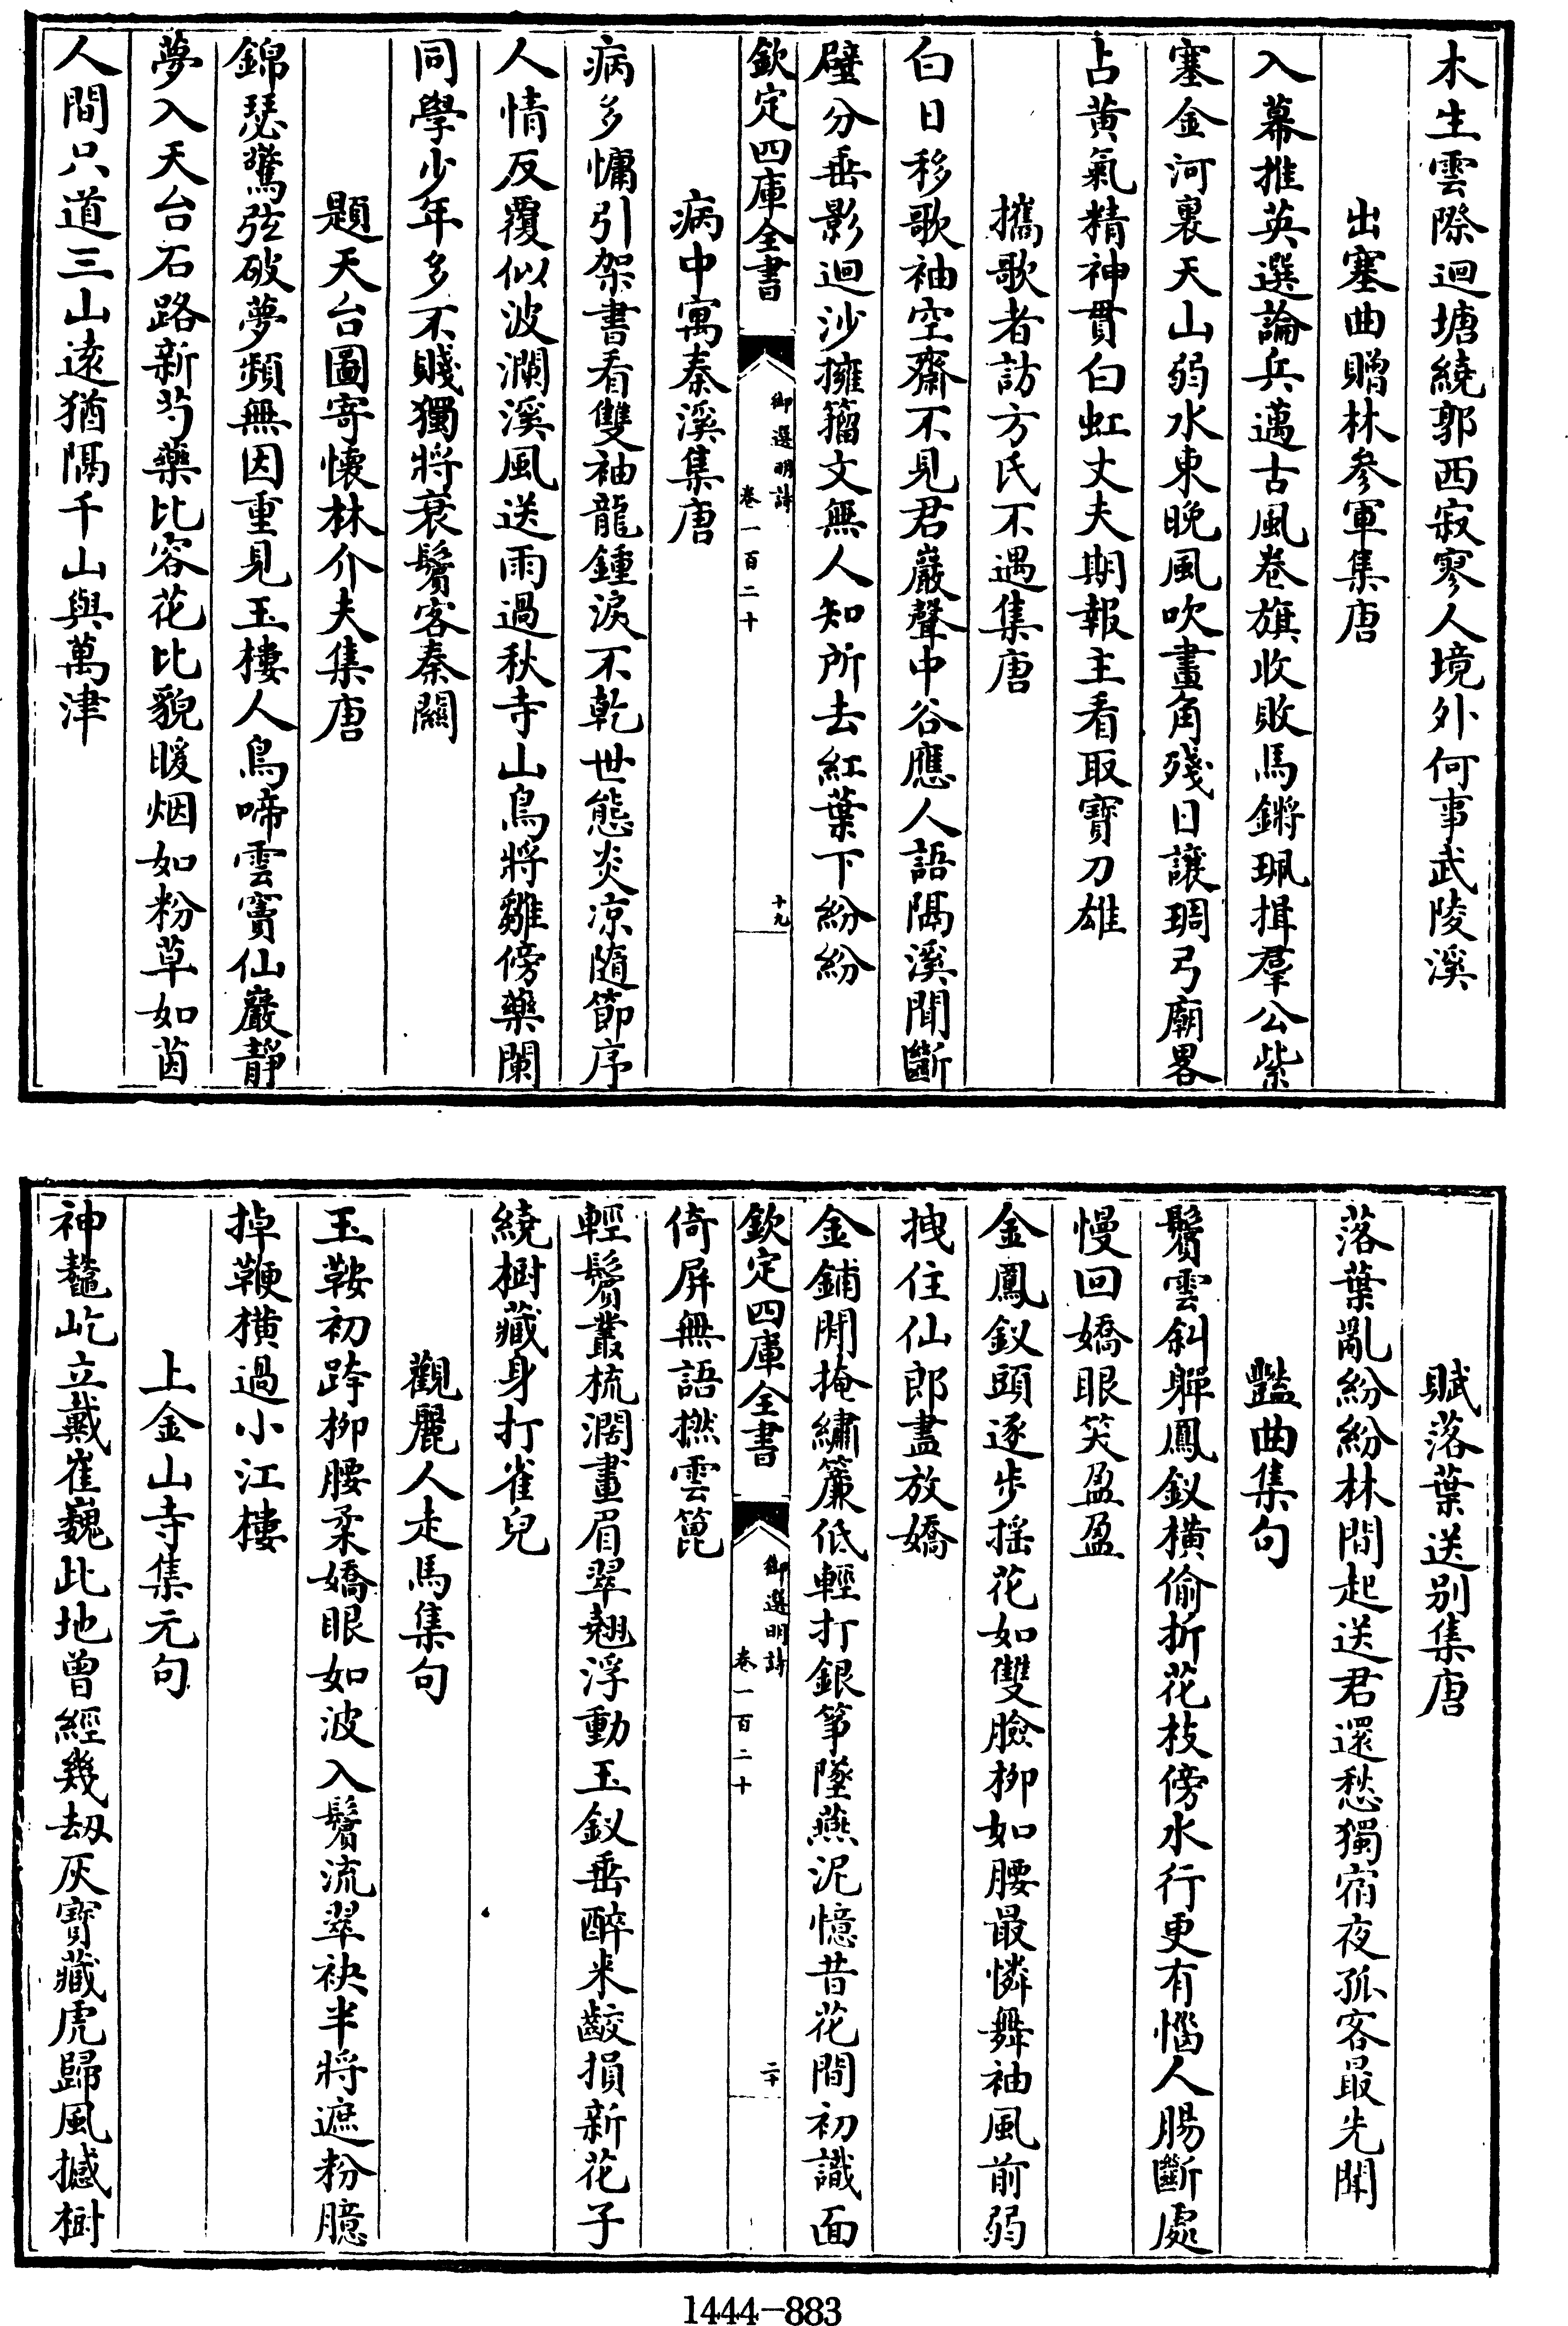 木生雲際迴塘繞郭西寂寥人境外何事武陵溪
出塞曲贈林參軍集唐
入幕推英選論兵邁古風卷旗收敗馬鏘珮揖羣公紫
塞金河裏天山弱水東晚風吹畫角殘日讓琱弓廟畧
占黃氣精神貫白虹丈夫期報主看取寶刀雄
攜歌者訪方氏不遇集唐
白日移歌袖空齋不見君巖聲中谷應人語隔溪聞斷
壁分垂影迴沙擁籀文無人知所去紅葉下紛紛
欽定四庫全書
御選明詩
卷一百二十
十九
病中寓秦溪集唐
病多慵引架書看雙袖龍鍾淚不乾世態炎凉隨節序
人情反覆似波瀾溪風送雨過秋寺山鳥將雛傍藥闌
同學少年多不賤獨將衰鬢客秦關
題天台圖寄懷林介夫集唐
錦瑟驚弦破夢頻無因重見玉樓人鳥啼雲竇仙巖靜
夢入天台石路新芍藥比容花比貌暖烟如粉草如茵
人間只道三山遠猶隔千山與萬津
賦落葉送别集唐
落葉亂紛紛林間起送君還愁獨宿夜孤客最先聞
豔曲集句
鬢雲斜軃鳳釵橫偷折花枝傍水行更有惱人腸斷處
慢回嬌眼笑盈盈
金鳳釵頭逐步摇花如雙臉柳如腰最憐舞袖風前弱
拽住仙郎盡放嬌
金鋪閒掩繡簾低輕打銀箏墜燕泥憶昔花間初識面
欽定四庫全書
御選明詩
卷一百二十
二十
倚屏無語撚雲篦
輕鬢叢梳濶畫眉翠翹浮動玉釵垂醉來齩損新花子
繞樹藏身打雀兒
觀麗人走馬集句
玉鞍初跨柳腰柔嬌眼如波入鬢流翠袂半將遮粉臆
掉鞭横過小江樓
上金山寺集元句
神鼇屹立戴崔巍此地曾經幾刼灰寶藏虎歸風撼樹
1444-883